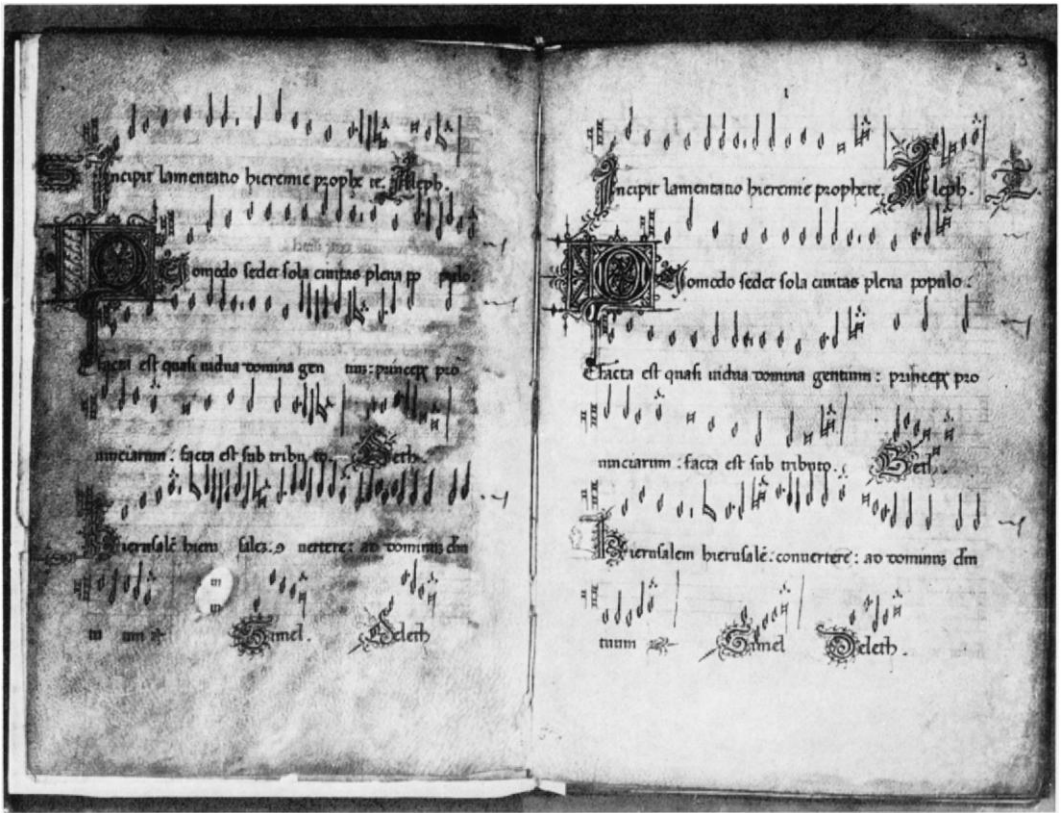 Incipit lamentatio hieremie prophe te. Aleph.
Quomodo sedet sola ciuitas plena po pulo:
facta est quasi uidua domina gen tium: princeps pro
uinciarum: facta est sub tribu to. Beth.
hierusalē hieru salē: uertere: ad dominum dm̄
tu um Gimel. Deleth
3
1
Incipit lamentatio hieremie prophete. Aleph.
Quomodo sedet sola ciuitas plena populo:
facta est quasi uidua domina gentium: princeps pro
uinciarum: facta est sub tributo. Beth.
hierusalem hierusalē: conuertere: ad dominum dm̄
tuum Gimel Deleth.